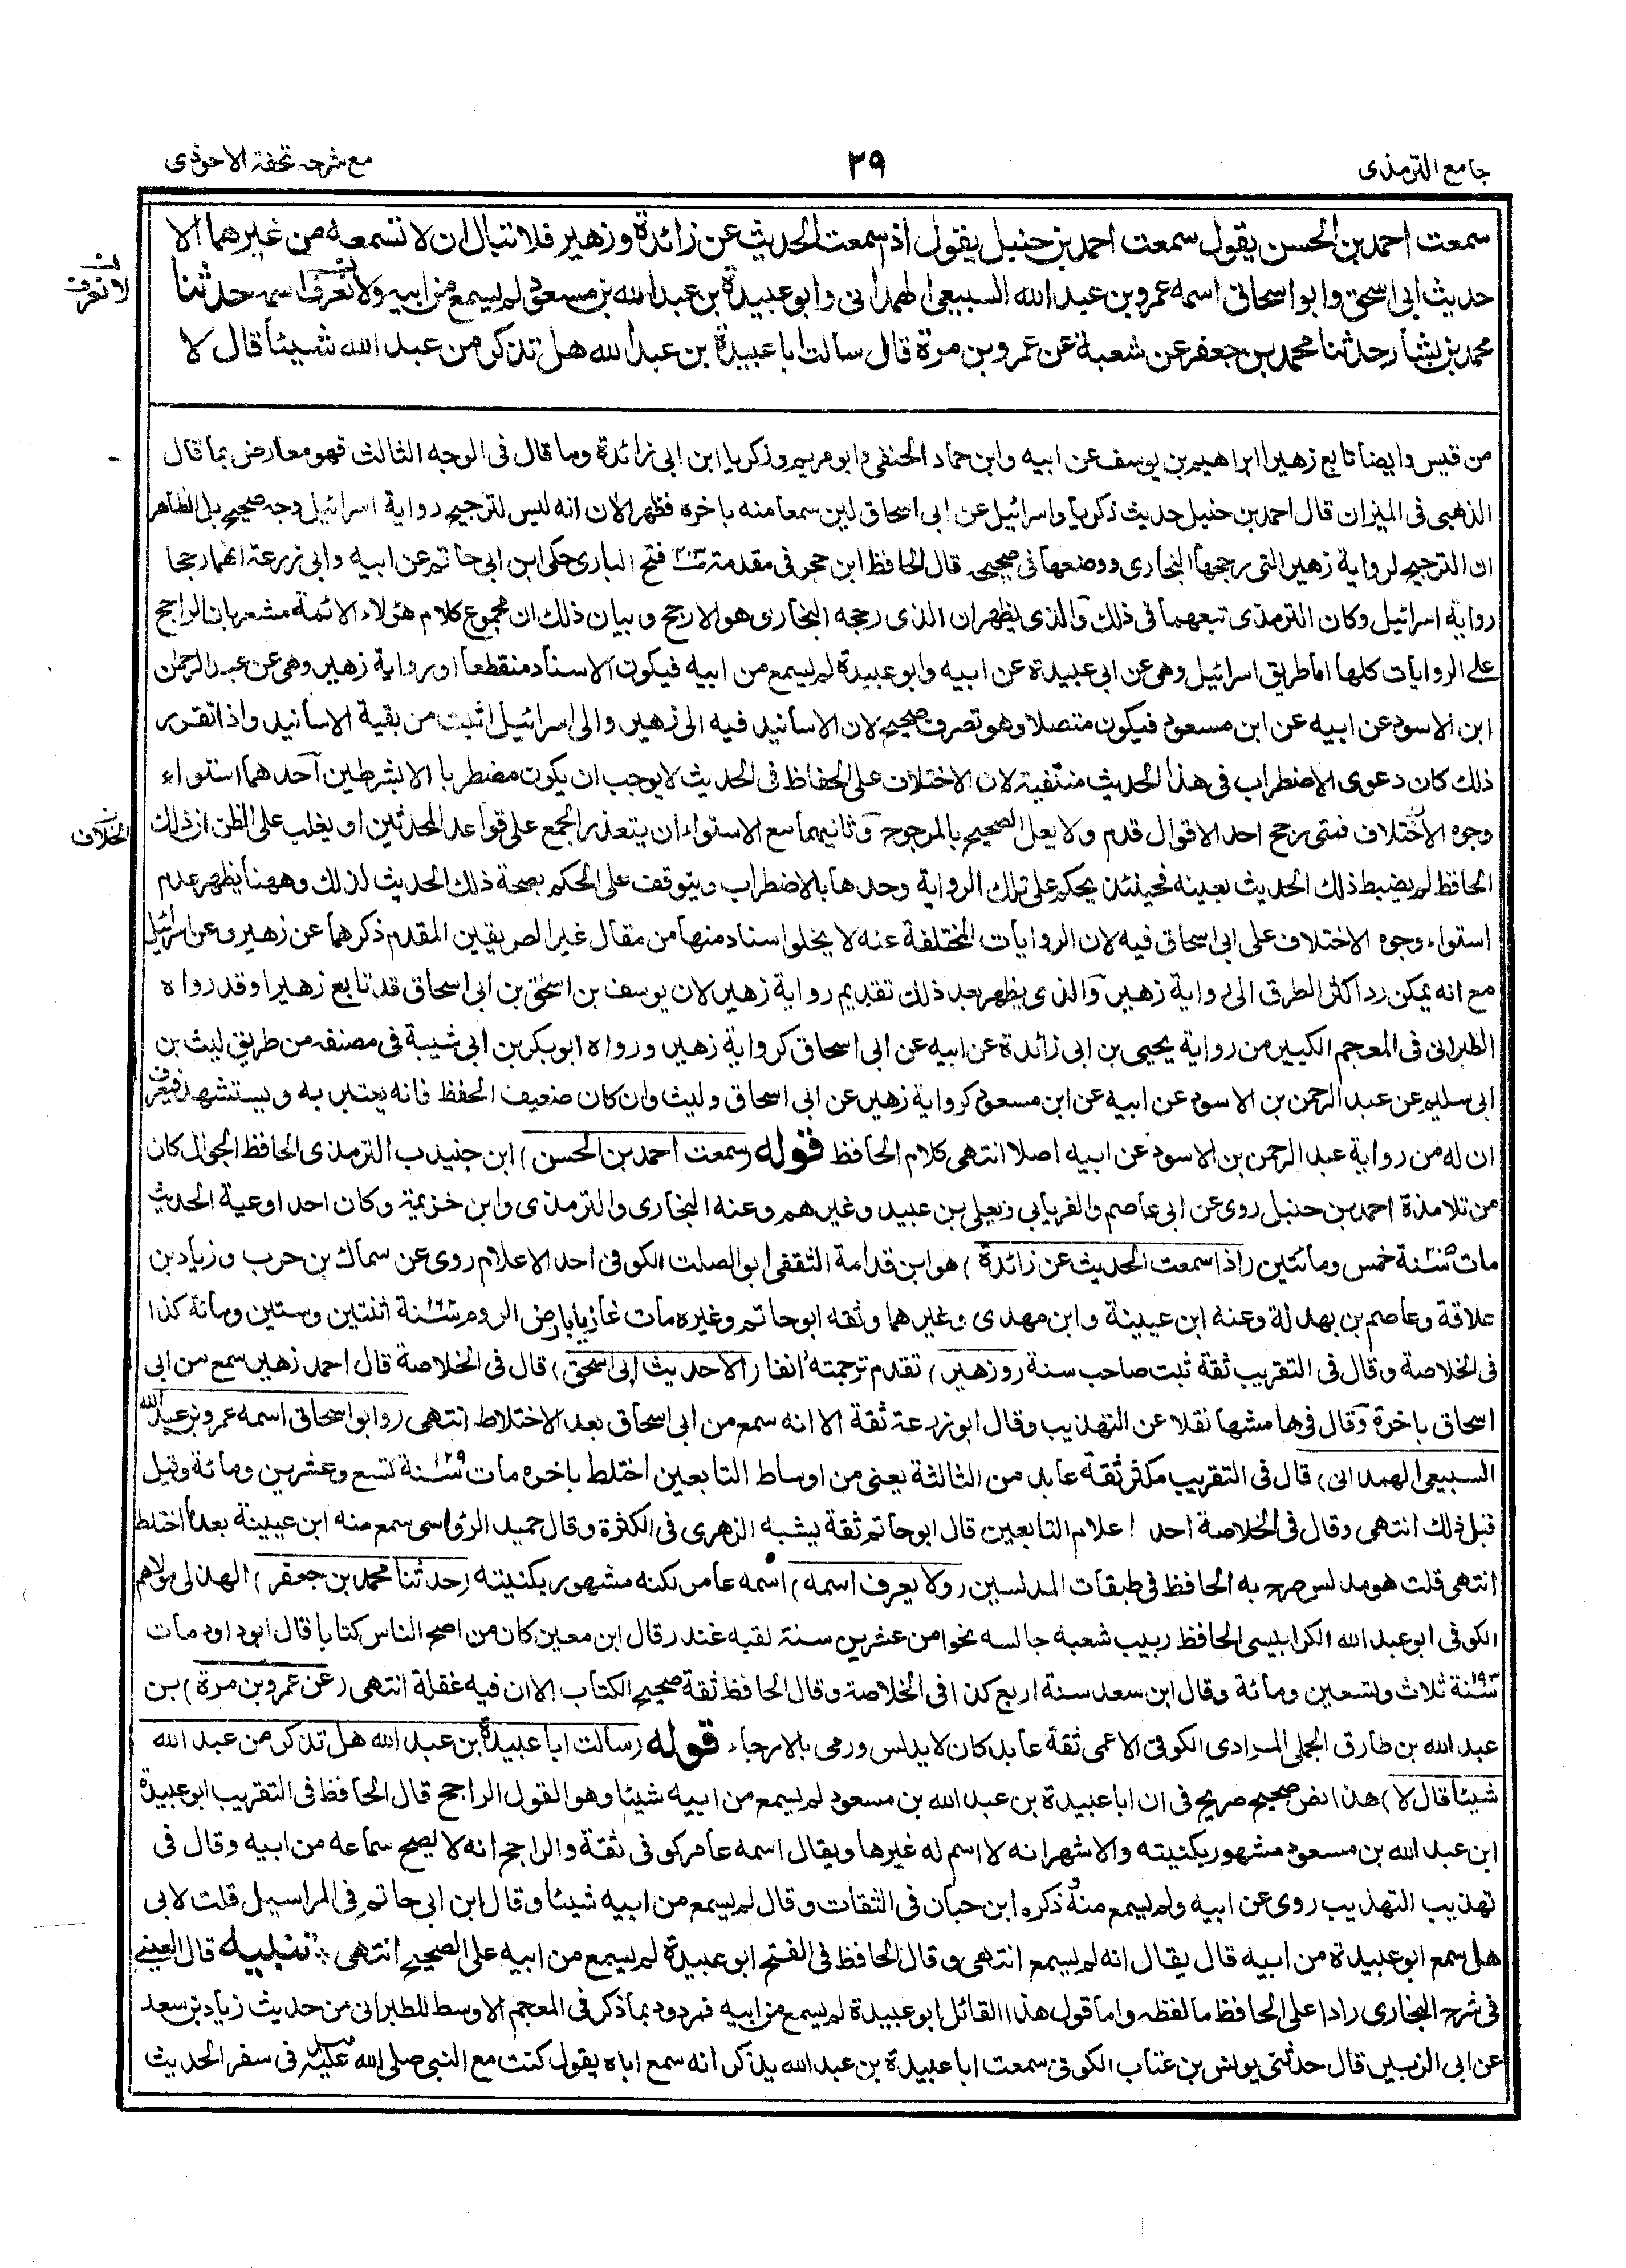 جامع الترمذى
٢٩
مع شرحه تحفة الاحوذى
سمعت احمد بن الحسن يقول سمعت احمد بن حنبل يقول اذا سمعت الحديث عن زائدة وزهير فلا تبال ان لا تسمعه من غيرهما الا
حديث ابى اسحق وابو اسحاق اسمه عمرو بن عبد الله السبيعى الهمدانى وابو عبيدة بن عبد الله بن مسعود لم يسمع من ابيه ولا نعرف اسمه حدثنا
لا نعرف
محمد بن بشار حدثنا محمد بن جعفر عن شعبة عن عمرو بن مرة قال سالت ابا عبيدة بن عبد الله هل تذكر من عبد الله شيئا قال لا
من قيس وايضا تابع زهيرا ابراهيم بن يوسف عن ابيه وابن حماد الحنفى وابو مريم وزكريا ابن ابى زائدة وما قال فى الوجه الثالث فهو معارض بما قال
الذهبى فى الميزان قال احمد بن حنبل حديث زكريا واسرائيل عن ابى اسحاق لين سمعا منه باخره فظهر الان انه ليس لترجيح رواية اسرائيل وجه صحيح بل الظاهر
ان الترجيح لرواية زهير التى رجحها البخارى ووضعها فى صحيحه قال الحافظ ابن حجر فى مقدمة فتح البارى حكى ابن ابى حاتم عن ابيه وابى زرعة انهما رجحا
رواية اسرائيل وكان الترمذى تبعهما فى ذلك والذى يظهر ان الذى رجحه البخارى هو الارجح وبيان ذلك ان مجموع كلام هؤلاء الائمة مشعر بان الراجح
على الروايات كلها اما طريق اسرائيل وهى عن ابى عبيدة عن ابيه وابو عبيدة لم يسمع من ابيه فيكون الاسناد منقطعا او رواية زهير وهى عن عبد الرحمن
ابن الاسود عن ابيه عن ابن مسعود فيكون متصلا وهو تصرف صحيح لان الاسانيد فيه الى زهير والى اسرائيل اثبت من بقية الاسانيد واذا تقرر
ذلك كان دعوى الاضطراب فى هذا الحديث منتفية لان الاختلاف على الحفاظ فى الحديث لا يوجب ان يكون مضطربا الا بشرطين احدهما استواء
وجوه الاختلاف فمتى رجح احد الاقوال قدم ولا يعل الصحيح بالمرجوح وثانيهما مع الاستواء ان يتعذر الجمع على قواعد المحدثين او يغلب على الظن ان ذلك
الخلاف
الحافظ لم يضبط ذلك الحديث بعينه فحينئذ يحكم على تلك الرواية وحدها بالاضطراب ويتوقف على الحكم بصحة ذلك الحديث لذلك وههنا يظهر عدم
استواء وجوه الاختلاف على ابى اسحاق فيه لان الروايات المختلفة عنه لا يخلو اسناد منها من مقال غير الطريقين المقدم ذكرهما عن زهير وعن اسرائيل
مع انه يمكن رد اكثر الطرق الى رواية زهير والذى يظهر بعد ذلك تقديم رواية زهير لان يوسف بن اسحق بن ابى اسحاق قد تابع زهيرا وقد رواه
الطبرانى فى المعجم الكبير من رواية يحيى بن ابى زائدة عن ابيه عن ابى اسحاق كرواية زهير ورواه ابوبكر بن ابى شيبة فى مصنفه من طريق ليث بن
ابى سليم عن عبد الرحمن بن الاسود عن ابيه عن ابن مسعود كرواية زهير عن ابى اسحاق وليث وان كان ضعيف الحفظ فانه يعتبر به ويستشهد فيعرف
ان له من رواية عبد الرحمن بن الاسود عن ابيه اصلا انتهى كلام الحافظ قوله (سمعت احمد بن الحسن) ابن جنيدب الترمذى الحافظ الجوال كان
من تلامذة احمد بن حنبل روى عن ابى عاصم والفريابى ويعلى بن عبيد وغيرهم وعنه البخارى والترمذى وابن خزيمة وكان احد اوعية الحديث
مات سنة خمس ومائتين (اذا سمعت الحديث عن زائدة) هو ابن قدامة الثقفى ابو الصلت الكوفى احد الاعلام روى عن سماك بن حرب وزياد بن
علاقة وعاصم بن بهدلة وعنه ابن عيينة وابن مهدى وغيرهما وثقه ابو حاتم وغيره مات غازيا بارض الروم سنة ١٦٢ اثنتين وستين ومائة كذا
فى الخلاصة وقال فى التقريب ثقة ثبت صاحب سنة (وزهير) تقدم ترجمته انفا (الا حديث ابى اسحق) قال فى الخلاصة قال احمد زهير سمع من ابى
اسحاق باخرة وقال فى هامشها نقلا عن التهذيب وقال ابو زرعة ثقة الا انه سمع من ابى اسحاق بعد الاختلاط انتهى (وابو اسحاق اسمه عمرو بن عبد الله
السبيعى الهمدانى) قال فى التقريب مكثر ثقة عابد من الثالثة يعنى من اوساط التابعين اختلط باخره مات سنة ١٢٩ تسع وعشرين ومائة وقيل
قبل ذلك انتهى وقال فى الخلاصة احد اعلام التابعين قال ابو حاتم ثقة يشبه الزهرى فى الكثرة وقال حميد الرؤاسى سمع منه ابن عيينة بعد ما اختلط
انتهى قلت هو مدلس صرح به الحافظ فى طبقات المدلسين (ولا يعرف اسمه) اسمه عامر لكنه مشهور بكنيته (حدثنا محمد بن جعفر) الهذلى مولاهم
الكوفى ابو عبد الله الكرابيسى الحافظ ربيب شعبه جالسه نحوا من عشرين سنة لقبه غندر قال ابن معين كان من اصح الناس كتابا قال ابو داود مات
سنة ١٩٣ ثلاث وتسعين ومائة وقال ابن سعد سنة اربع كذا فى الخلاصة وقال الحافظ ثقة صحيح الكتاب الا ان فيه غفلة انتهى (عن عمرو بن مرة) بن
عبد الله بن طارق الجملى المرادى الكوفى الاعمى ثقة عابد كان لا يدلس ورمى بالارجاء قوله (سالت ابا عبيدة بن عبد الله هل تذكر من عبد الله
شيئا قال لا) هذا نص صحيح صريح فى ان ابا عبيدة بن عبد الله بن مسعود لم يسمع من ابيه شيئا وهو القول الراجح قال الحافظ فى التقريب ابو عبيدة
ابن عبد الله بن مسعود مشهور بكنيته والاشهر انه لا اسم له غيرها ويقال اسمه عامر كوفى ثقة والراجح انه لا يصح سماعه من ابيه وقال فى
تهذيب التهذيب روى عن ابيه ولم يسمع منه ذكره ابن حبان فى الثقات وقال لم يسمع من ابيه شيئا وقال ابن ابى حاتم فى المراسيل قلت لابى
هل سمع ابو عبيدة من ابيه قال يقال انه لم يسمع انتهى وقال الحافظ فى الفتح ابو عبيدة لم يسمع من ابيه على الصحيح انتهى تنبيه قال العينى
فى شرح البخارى رادا على الحافظ ما لفظه واما قول هذا القائل ابو عبيدة لم يسمع من ابيه فمردود بما ذكر فى المعجم الاوسط للطبرانى من حديث زياد بن سعد
عن ابى الزبير قال حدثنى يونس بن عتاب الكوفى سمعت ابا عبيدة بن عبد الله يذكر انه سمع اباه يقول كنت مع النبى صلى الله عليه وسلم فى سفر الحديث